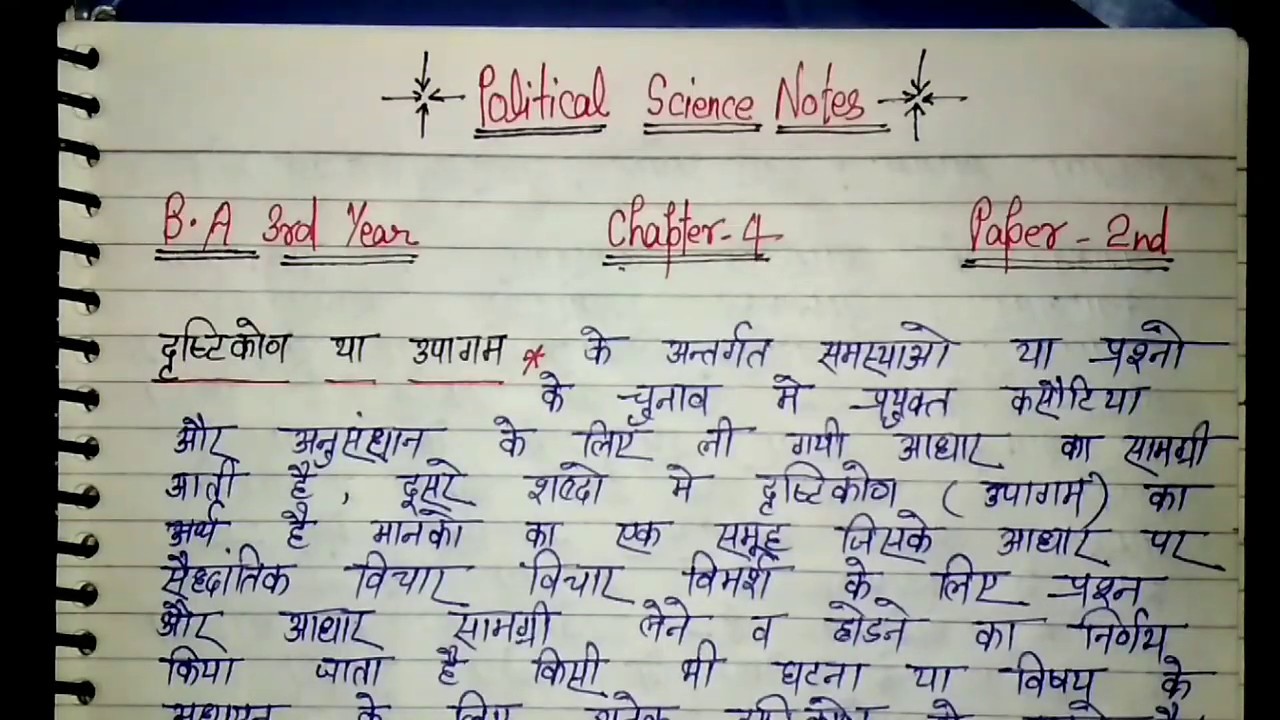 Political Science Notes
B.A 3rd Year Chapter-4 Paper-2nd
दृष्टिकोण या उपागम * के अन्तर्गत समस्याओ या प्रश्नो
के चुनाव मे प्रयुक्त कसौटिया
और अनुसंधान के लिए ली गयी आधार का सामग्री
आती है, दूसरे शब्दो मे दृष्टिकोण (उपागम) का
अर्थ है मानको का एक समूह जिसके आधार पर
सैध्दांतिक विचार विचार विमर्श के लिए प्रश्न
और आधार सामग्री लेने व छोडने का निर्णय
किया जाता है किसी भी घटना या विषय के
के लिए